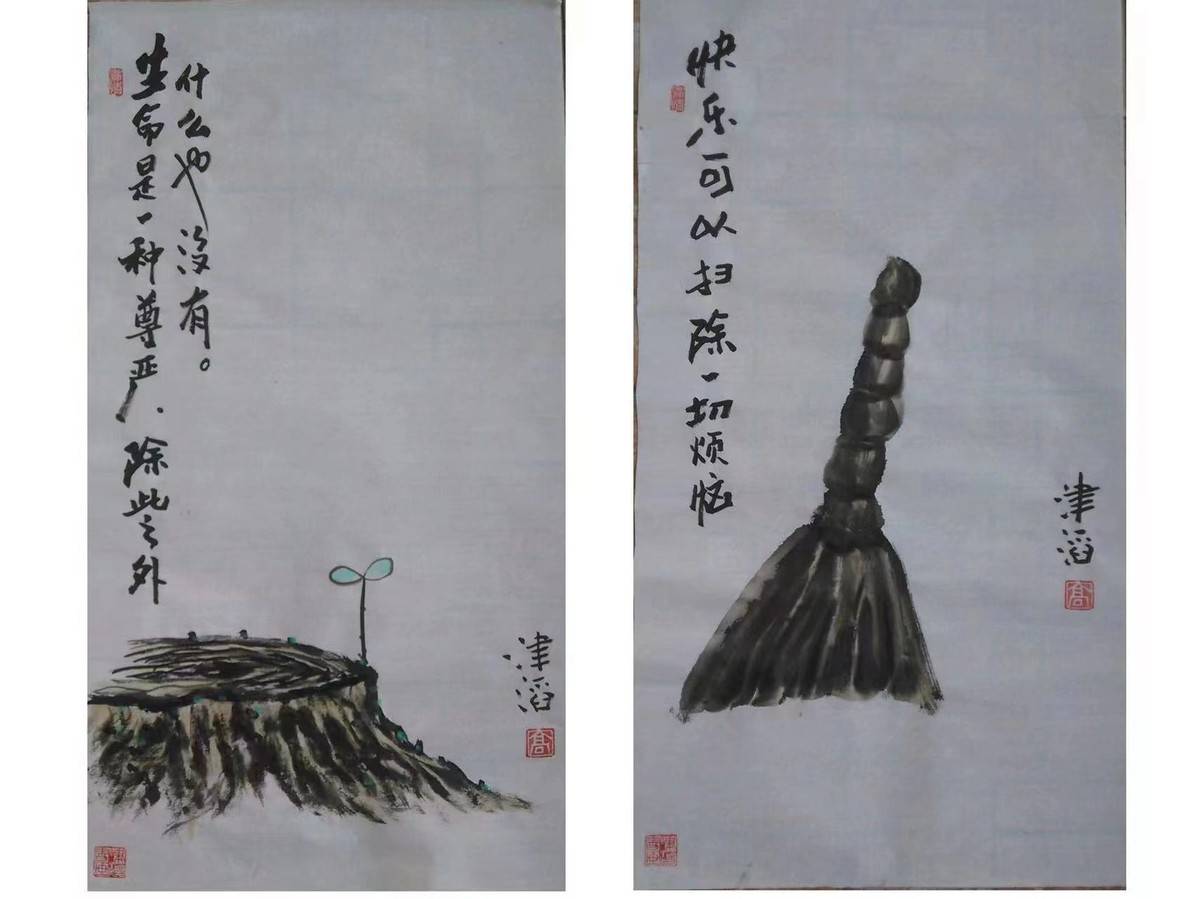 生命是一种尊严、除此之外
什么也没有。
津滔
高
快乐可以扫除一切烦恼
津滔
高